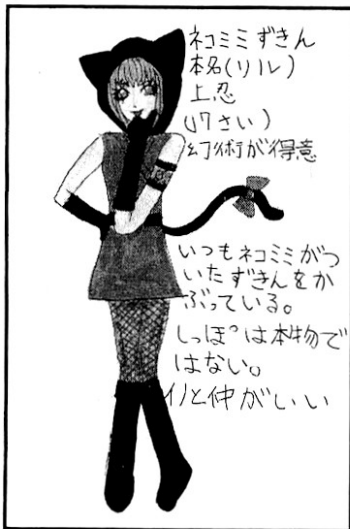 ネコミミずきん
本名(リル)
上忍
(17さい)
幻術が得意
いつもネコミミがつ
いたずきんをか
ぶっている。
しっぽは本物で
はない。
イノと仲がいい